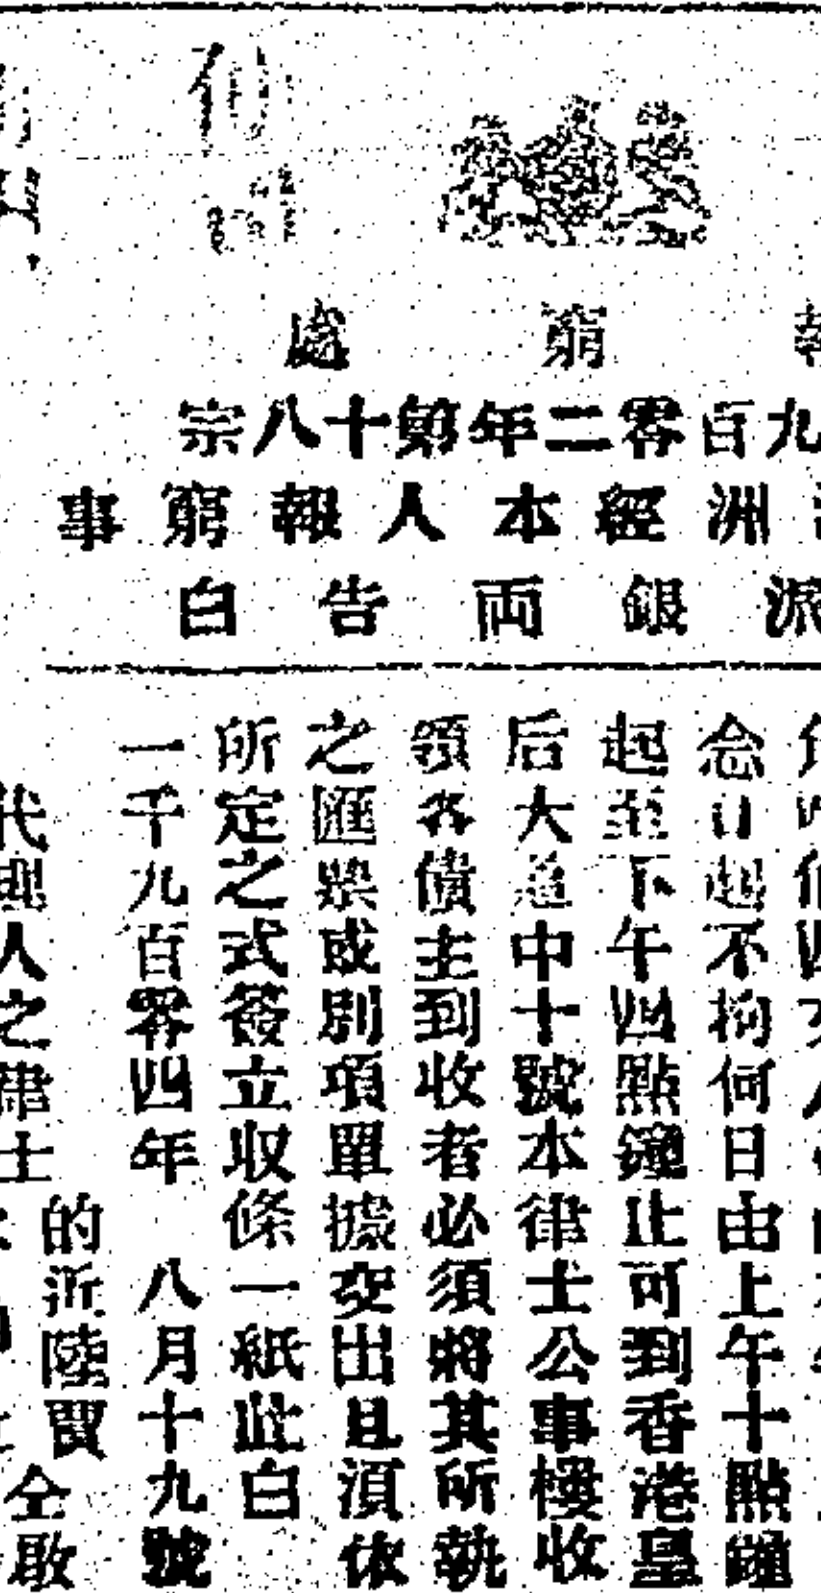 窮處
九百零二年第十八宗
洲經本人報窮事
派銀両告白
念日起不拘何日由上午十點鐘
起至下午四點鐘止可到香港皇
后大道中十號本律士公事樓收
領各債主到收者必須將其所執
之匯票或別項單據交出且須依
所定之式簽立収條一紙此白
一千九百零四年 八月十九號
的近陸賈
代理人之律士
仝啟